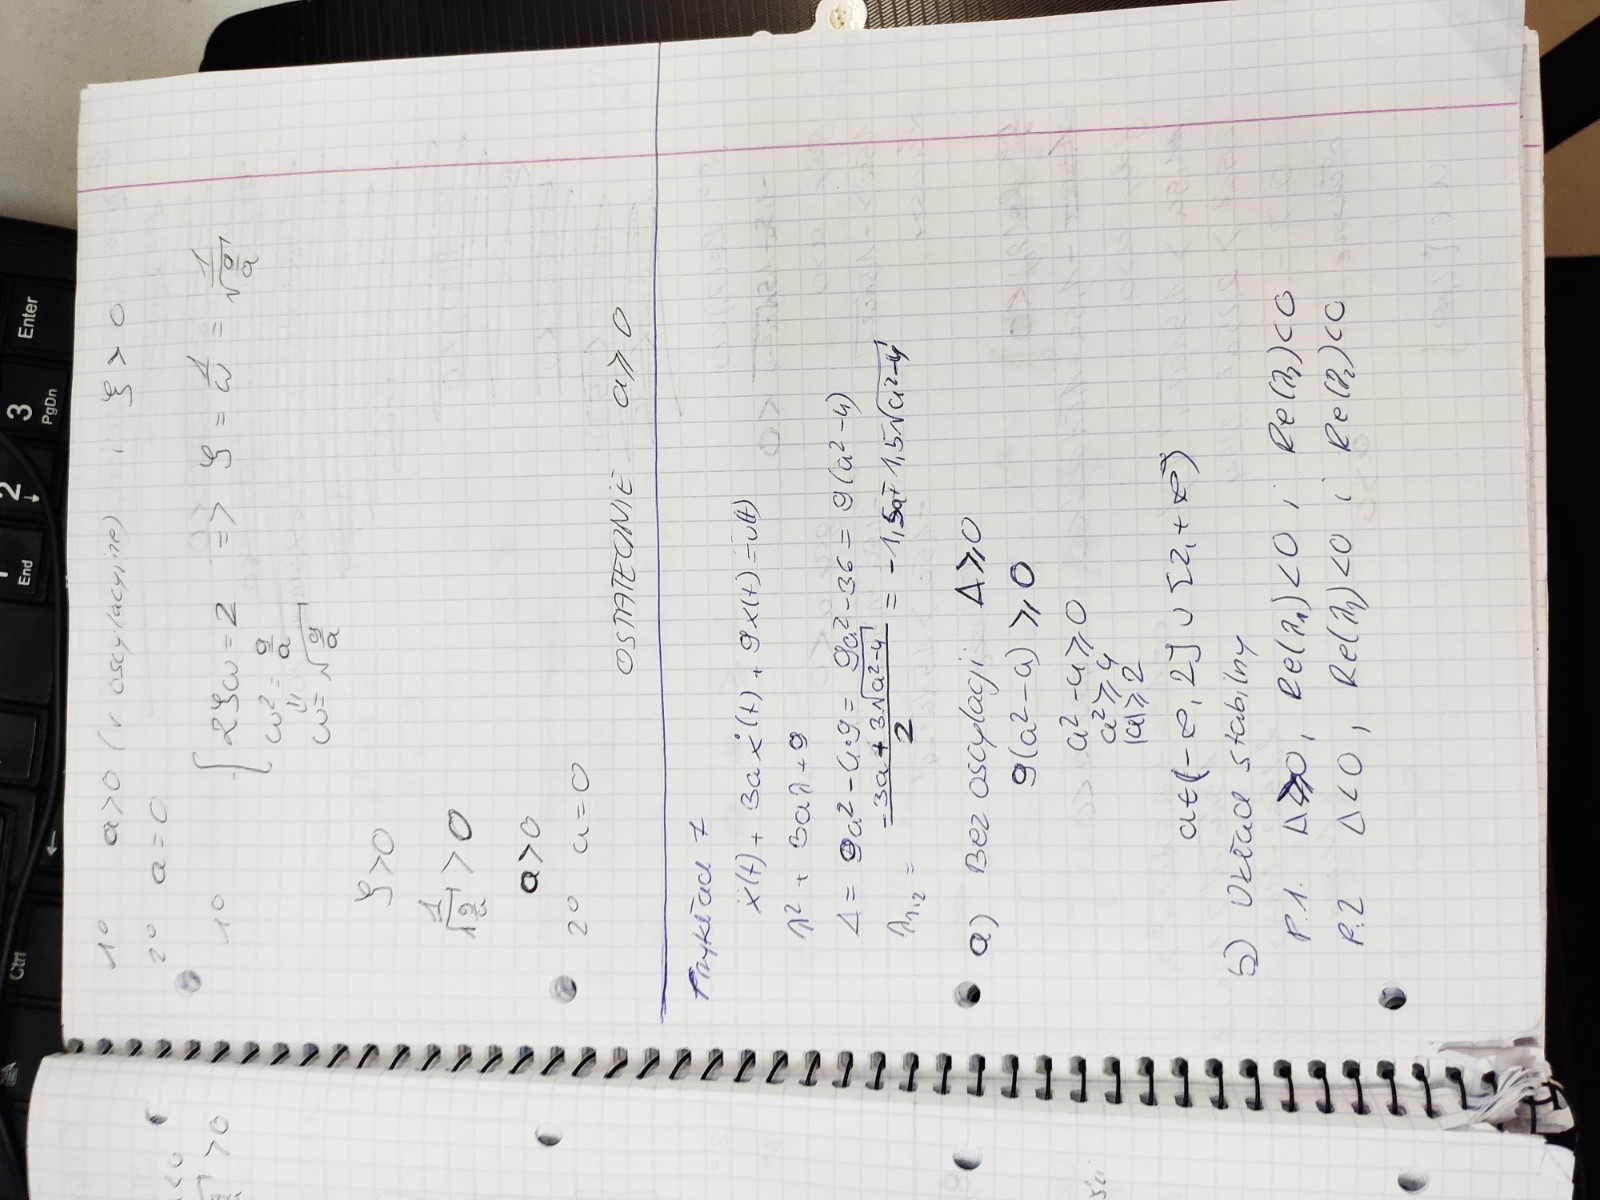 1° a>0 (v oscylacyjne) i ξ > 0
2° a=0
1° { 2ξω = 2 => ξ = 1/ω = 1/√(9/a)
ω² = 9/a
ω = √(9/a)
ξ>0
1/√(9/a) > 0
a>0
2° a=0
OSTATECZNIE a⩾0
Przykład 7
ẍ(t) + 3aẋ(t) + 9x(t) = u(t)
λ² + 3aλ + 9
Δ = 9a² - 4·9 = 9a² - 36 = 9(a² - 4)
λ₁,₂ = (-3a ∓ 3√(a²-4))/2 = -1,5a ∓ 1,5√(a²-4)
a) Bez oscylacji Δ⩾0
9(a²-4) ⩾ 0
a²-4⩾0
a²⩾4
|a|⩾2
a∈(-∞, 2] ∪ [2, +∞)
b) Układ stabilny
P.1. Δ⩾0, Re(λ₁)<0 i Re(λ₂)<0
P.2 Δ<0, Re(λ₁)<0 i Re(λ₂)<0
<0
>0
ści
Enter
3
PgDn
2
1
End
Ctrl